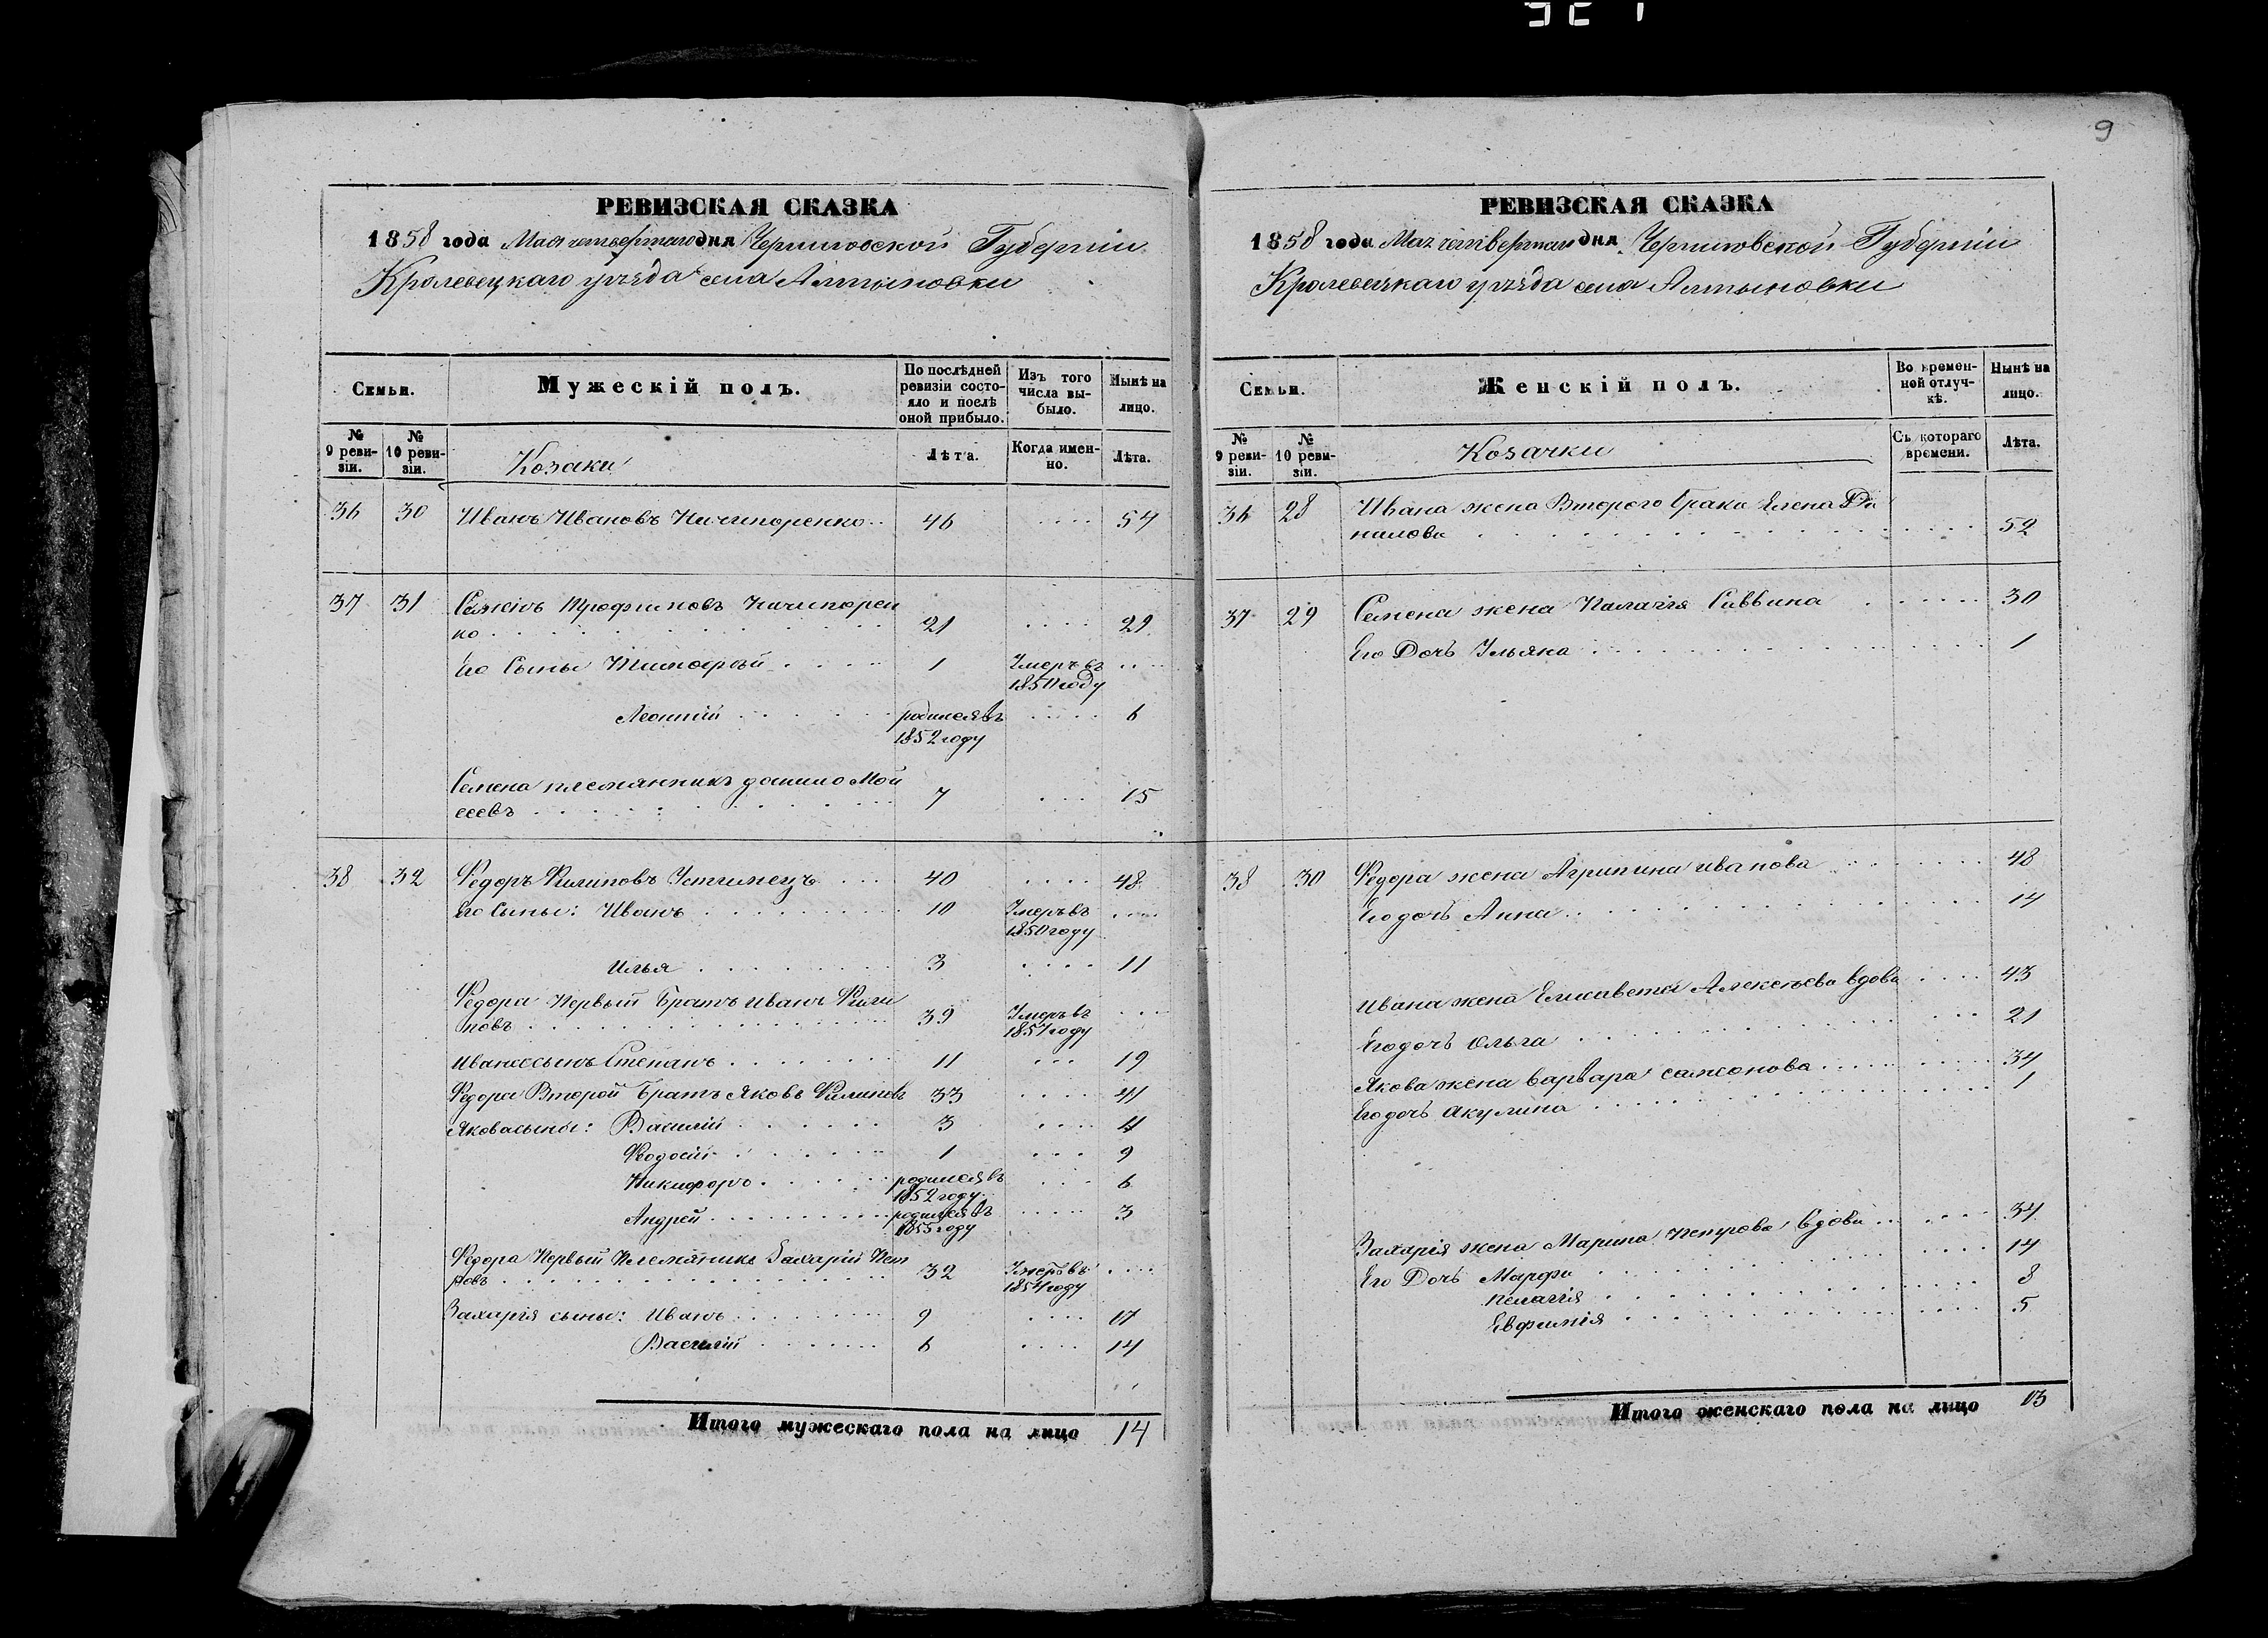 9
РЕВИЗСКАЯ СКАЗКА
1858 года Мая четвертаго дня Черниговской Губерніи
Кролевецкаго уѣзда села Алтыновки
Семьи.
Мужескій полъ.
По послѣдней ревизіи состояло и послѣ оной прибыло.
Изъ того числа выбыло.
Нынѣ на лицо.
№ 9 ревизіи.
№ 10 ревизіи.
Козаки
Лѣта.
Когда именно.
Лѣта.
36 30 Иванъ Ивановъ Ничипоренко 46 .... 54
37 31 Семенъ Трофимовъ Ничипорен
ко 21 .... 29
Его Сыны Тимофей 1 Умеръ въ ....
1850 году
Леонтій родился въ .... 6
1852 году
Семена племянникъ данило Мой
сеевъ 7 ... 15
38 32 Федоръ Филиповъ Устименъ 40 .... 48
Его Сыны: Иванъ 10 Умеръ въ ....
1850 году
Илья 3 .... 11
Федора Первый Братъ иванъ Фили
повъ 39 Умеръ въ ...
1857 году
ивана сынъ Степанъ 11 ... 19
Федора Второй Братъ Яковъ Филиповъ 33 .... 41
Якова сыны: Василій 3 .... 11
Феодосій 1 ... 9
Никифоръ родился въ ... 6
1852 году
Андрей родился въ .... 3
1855 году
Федора Первый Племянникъ Захарій Пет
ровъ 32 Умеръ въ ....
1854 году
Захарія сыны: Иванъ 9 .... 17
Василій 6 .... 14
Итого мужескаго пола на лицо 14
РЕВИЗСКАЯ СКАЗКА
1858 года Мая четвертаго дня Черниговской Губерніи
Кролевецкаго уѣзда села Алтыновки
Семьи.
Женскій полъ.
Во временной отлучкѣ.
Нынѣ на лицо.
№ 9 ревизіи.
№ 10 ревизіи.
Козачки
Съ котораго времени.
Лѣта.
36 28 Ивана жена Второго брака Елена Да
нилова 52
37 29 Семена жена Палагія Саввина 30
Его Дочь Ульяна 1
38 30 Федора жена Агрипина иванова 48
Его дочь Анна 14
ивана жена Елисавета Алексѣева вдова 43
Его дочь Ольга 21
Якова жена варвара самсонова 34
Его дочь акулина 1
Захарія жена Марина петрова вдова 34
Его Дочь Марфа 14
пелагія 8
Евфимія 5
Итого женскаго пола на лицо 13